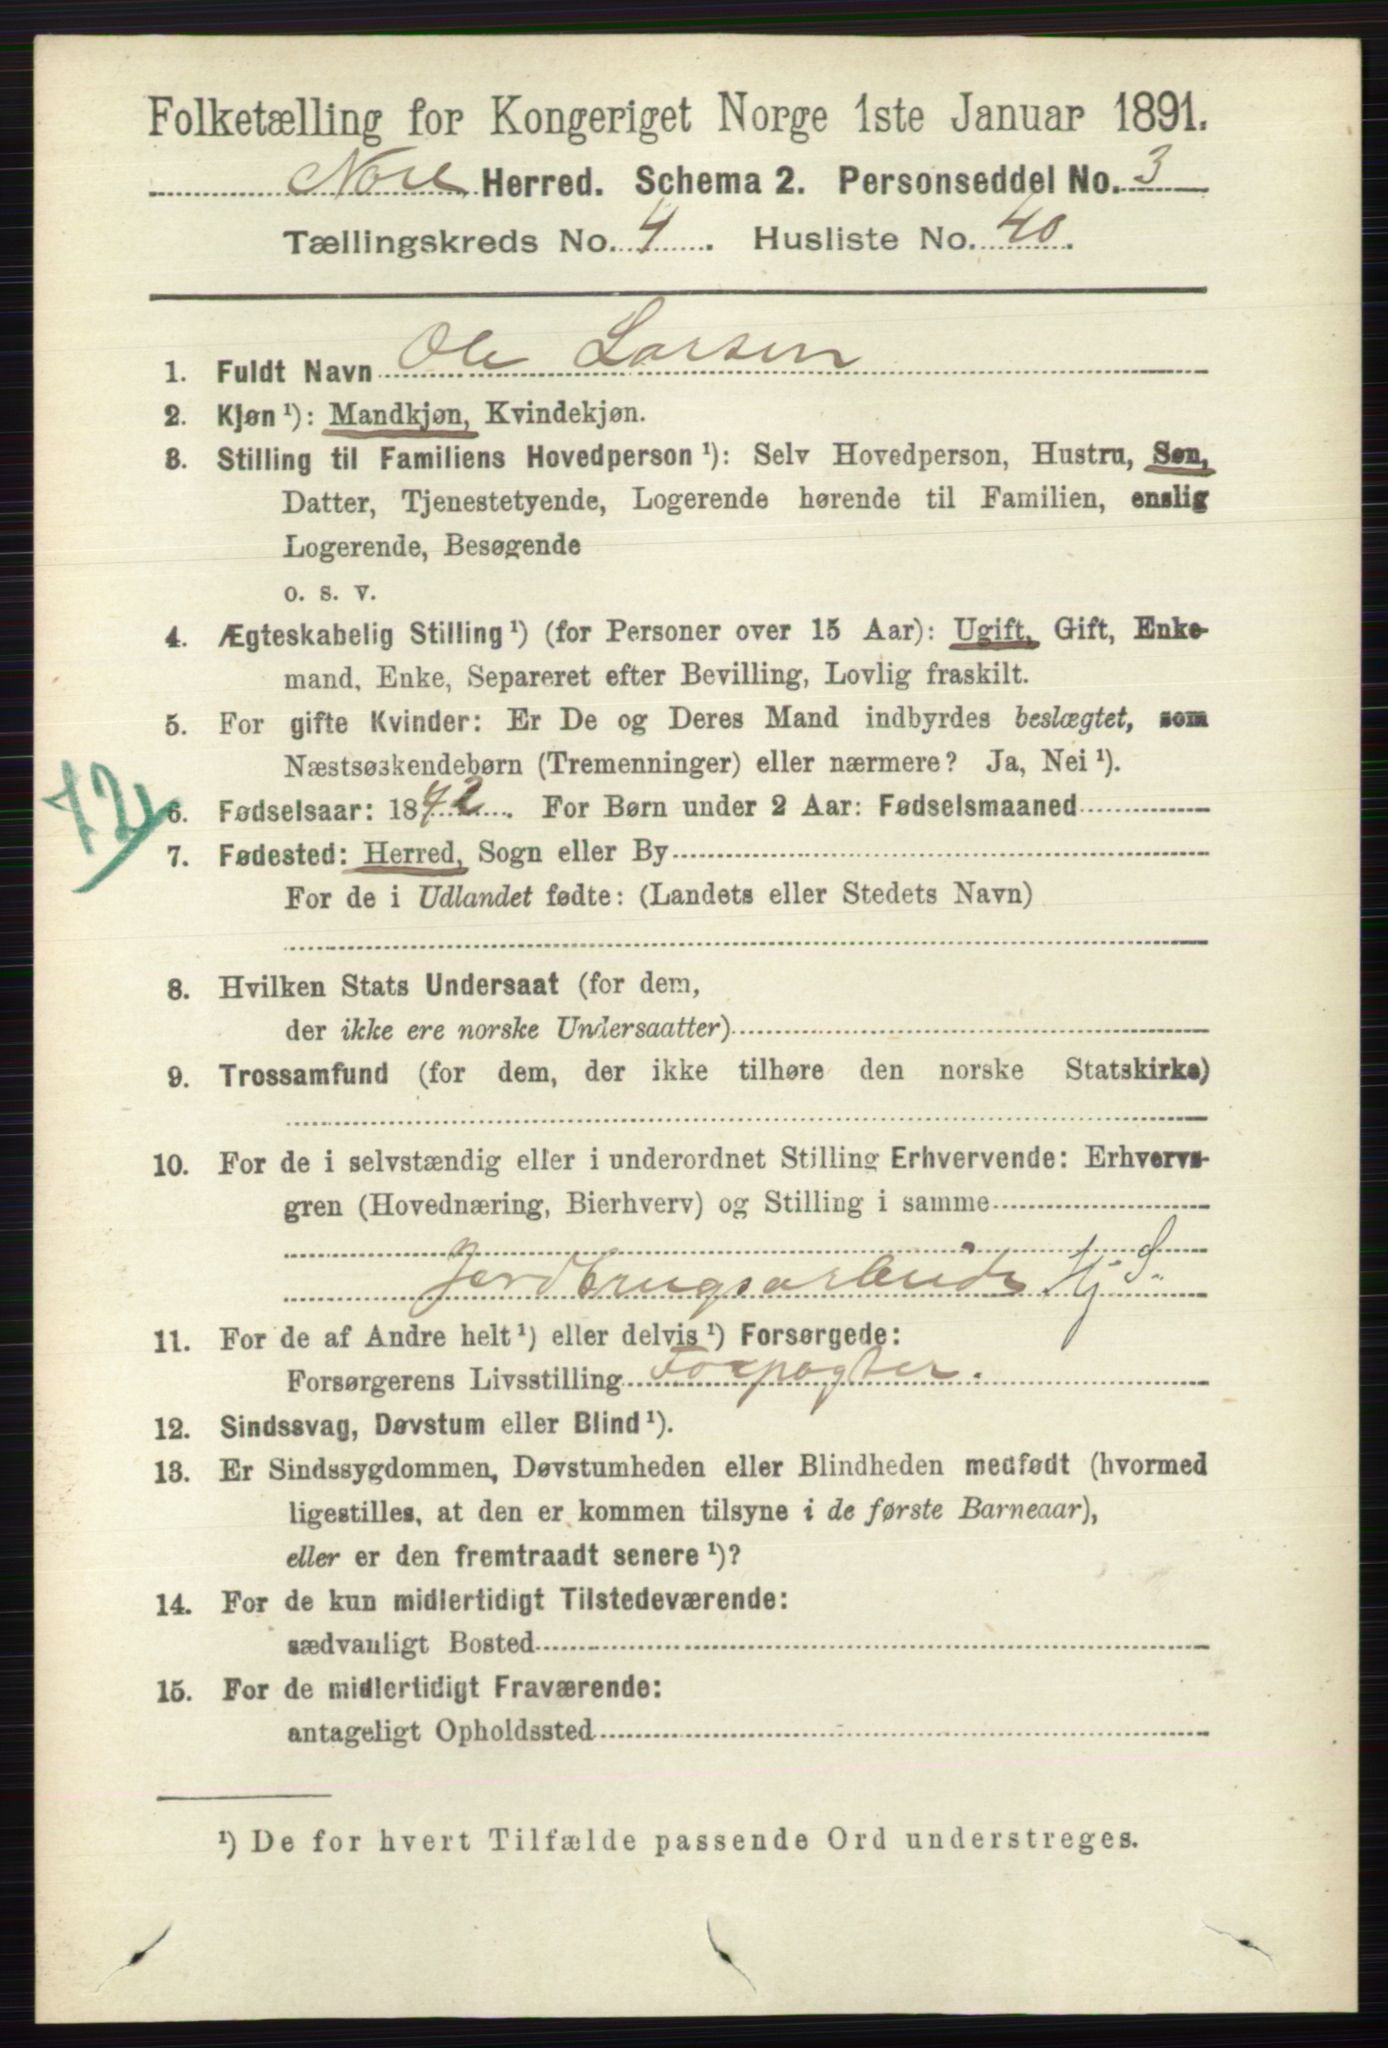 Folketælling for Kongeriget Norge 1ste Januar 1891.
Nore Herred. Schema 2. Personseddel No. 3
Tællingskreds No. 4. Husliste No. 40.
1. Fuldt Navn Ole Larsen
2. Kjøn ¹): Mandkjøn, Kvindekjøn.
3. Stilling til Familiens Hovedperson ¹): Selv Hovedperson, Hustru, Søn,
Datter, Tjenestetyende, Logerende hørende til Familien, enslig
Logerende, Besøgende
o. s. v.
4. Ægteskabelig Stilling ¹) (for Personer over 15 Aar): Ugift, Gift, Enke-
mand, Enke, Separeret efter Bevilling, Lovlig fraskilt.
5. For gifte Kvinder: Er De og Deres Mand indbyrdes beslægtet, som
Næstsøskendebørn (Tremenninger) eller nærmere? Ja, Nei ¹).
72
6. Fødselsaar: 1872. For Børn under 2 Aar: Fødselsmaaned
7. Fødested: Herred, Sogn eller By
For de i Udlandet fødte: (Landets eller Stedets Navn)
8. Hvilken Stats Undersaat (for dem,
der ikke ere norske Undersaatter)
9. Trossamfund (for dem, der ikke tilhøre den norske Statskirke)
10. For de i selvstændig eller i underordnet Stilling Erhvervende: Erhvervs-
gren (Hovednæring, Bierhverv) og Stilling i samme
Jordbrugsarbeide Hj S
11. For de af Andre helt ¹) eller delvis ¹) Forsørgede:
Forsørgerens Livsstilling Forpagter.
12. Sindssvag, Døvstum eller Blind ¹).
13. Er Sindssygdommen, Døvstumheden eller Blindheden medfødt (hvormed
ligestilles, at den er kommen tilsyne i de første Barneaar),
eller er den fremtraadt senere ¹)?
14. For de kun midlertidigt Tilstedeværende:
sædvanligt Bosted
15. For de midlertidigt Fraværende:
antageligt Opholdssted
¹) De for hvert Tilfælde passende Ord understreges.